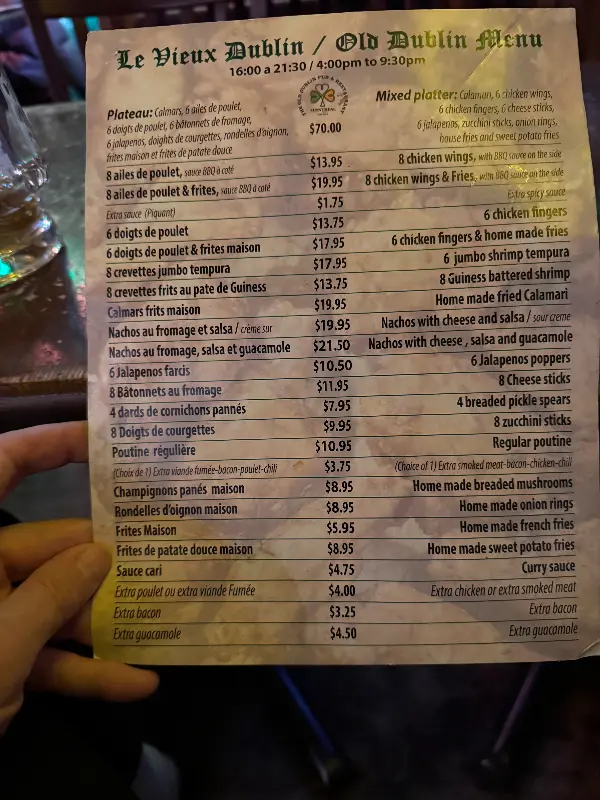 Le Vieux Dublin / Old Dublin Menu
16:00 a 21:30 / 4:00pm to 9:30pm
Plateau: Calmars, 6 ailes de poulet,
6 doigts de poulet, 6 bâtonnets de fromage,
6 jalapenos, doights de courgettes, rondelles d'oignon,
frites maison et frites de patate douce
$70.00
Mixed platter: Calamari, 6 chicken wings,
6 chicken fingers, 6 cheese sticks,
6 jalapenos, zucchini sticks, onion rings,
house fries and sweet potato fries
8 ailes de poulet, sauce BBQ à coté $13.95 8 chicken wings, with BBQ sauce on the side
8 ailes de poulet & frites, sauce BBQ à coté $19.95 8 chicken wings & Fries, with BBQ sauce on the side
Extra sauce (Piquant) $1.75 Extra spicy sauce
6 doigts de poulet $13.75 6 chicken fingers
6 doigts de poulet & frites maison $17.95 6 chicken fingers & home made fries
8 crevettes jumbo tempura $17.95 6 jumbo shrimp tempura
8 crevettes frits au pate de Guiness $13.75 8 Guiness battered shrimp
Calmars frits maison $19.95 Home made fried Calamari
Nachos au fromage et salsa / crème sur $19.95 Nachos with cheese and salsa / sour creme
Nachos au fromage, salsa et guacamole $21.50 Nachos with cheese , salsa and guacamole
6 Jalapenos farcis $10.50 6 Jalapenos poppers
8 Bâtonnets au fromage $11.95 8 Cheese sticks
4 dards de cornichons pannés $7.95 4 breaded pickle spears
8 Doigts de courgettes $9.95 8 zucchini sticks
Poutine régulière $10.95 Regular poutine
(Choix de 1) Extra viande fumée-bacon-poulet-chili $3.75 (Choice of 1) Extra smoked meat-bacon-chicken-chili
Champignons panés maison $8.95 Home made breaded mushrooms
Rondelles d'oignon maison $8.95 Home made onion rings
Frites Maison $5.95 Home made french fries
Frites de patate douce maison $8.95 Home made sweet potato fries
Sauce cari $4.75 Curry sauce
Extra poulet ou extra viande Fumée $4.00 Extra chicken or extra smoked meat
Extra bacon $3.25 Extra bacon
Extra guacamole $4.50 Extra guacamole